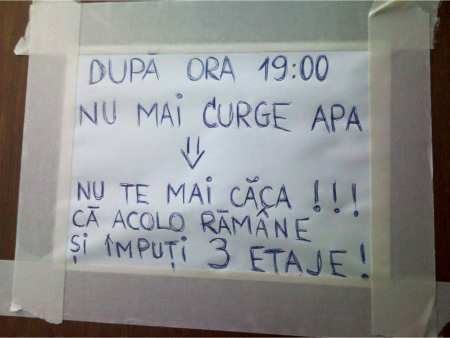 DUPĂ ORA 19:00
NU MAI CURGE APA
⇓
NU TE MAI CĂCA !!!
CĂ ACOLO RĂMÂNE
ȘI ÎMPUȚI 3 ETAJE!